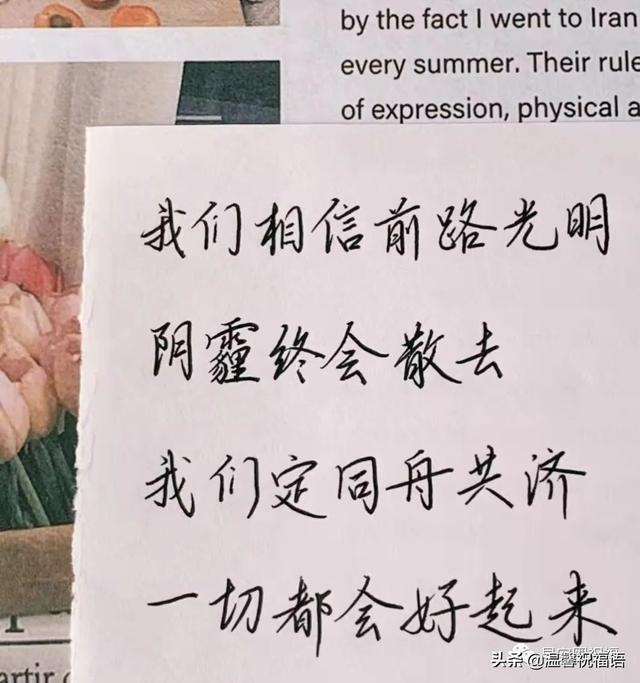 by the fact I went to Iran
every summer. Their rule
of expression, physical a
我们相信前路光明
阴霾终会散去
我们定同舟共济
一切都会好起来
头条@温馨祝福语